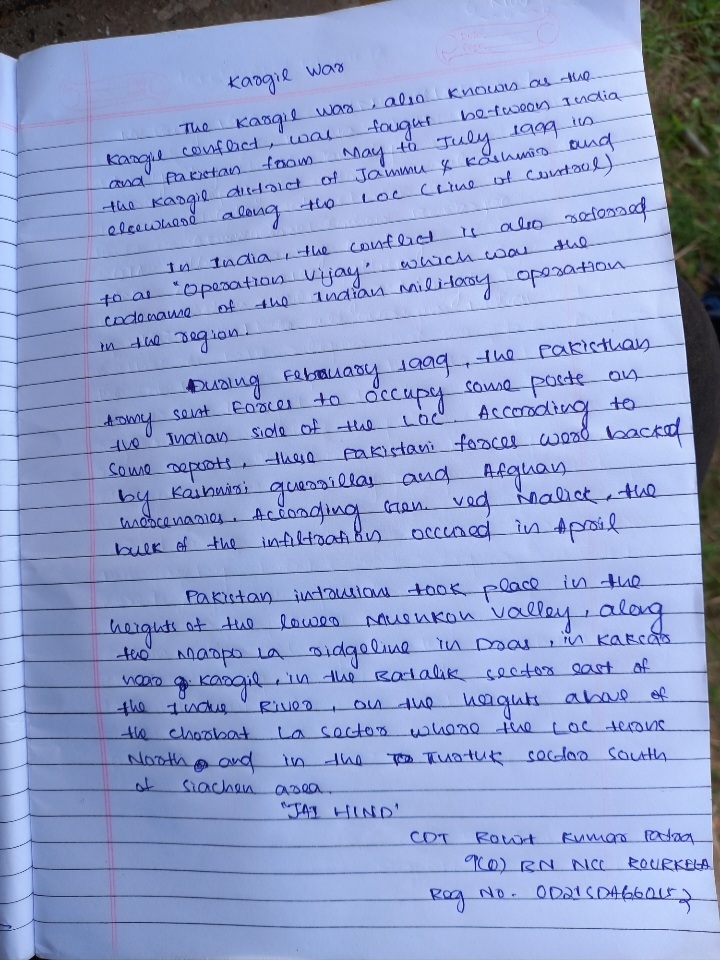 Kargil War
The Kargil War, also known as the
Kargil conflict, was fought between India
and Pakistan from May to July 1999 in
the Kargil district of Jammu & Kashmir and
elsewhere along the LOC (Line of Control)
In India, the conflict is also referred
to as "Operation Vijay" which was the
codename of the Indian military operation
in the region.
During February 1999, the Pakisthan
Army sent forces to occupy some posts on
the Indian side of the LOC. According to
some reports, these Pakistani forces were backed
by Kashmiri guerrillas and Afghan
mercenaries. According Gen. Ved Malick, the
bulk of the infiltration occured in April
Pakistan intrusions took place in the
heights of the lower Mushkoh valley, along
the Marpo La ridgeline in Dras, in Kakcar
near Kargil, in the Batalik sector east of
the Indus River, on the heights above of
the Chorbat La sector where the LOC turns
North and in the Turtuk sector south
of Siachen area.
"JAI HIND"
CDT Rohit Kumar
BN NCC ROURKELA
Reg No.